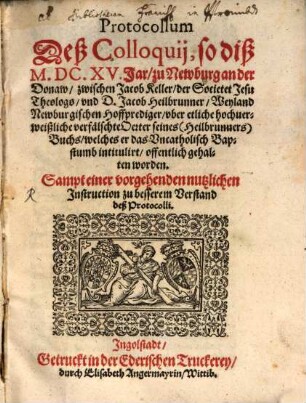 Protocollum
Deß Colloquij, so diß
M. DC. XV. Jar/ zu Newburg an der
Donaw/ zwischen Jacob Keller/ der Societet Jesu
Theologo/ vnd D. Jacob Heilbrunner/ Weyland
Newburgischen Hoffprediger/ vber etliche hochver-
weißliche verfälschte Oerter seines (Heilbrunners)
Buchs/ welches er das Vncatholisch Bap-
stumb intitulirt/ offentlich gehal-
ten worden.
Sampt einer vorgehenden nutzlichen
Instruction zu besserem Verstand
deß Protocolli.
Ingolstadt/
Getruckt in der Ederischen Truckerey/
durch Elisabeth Angermayrin/ Wittib.